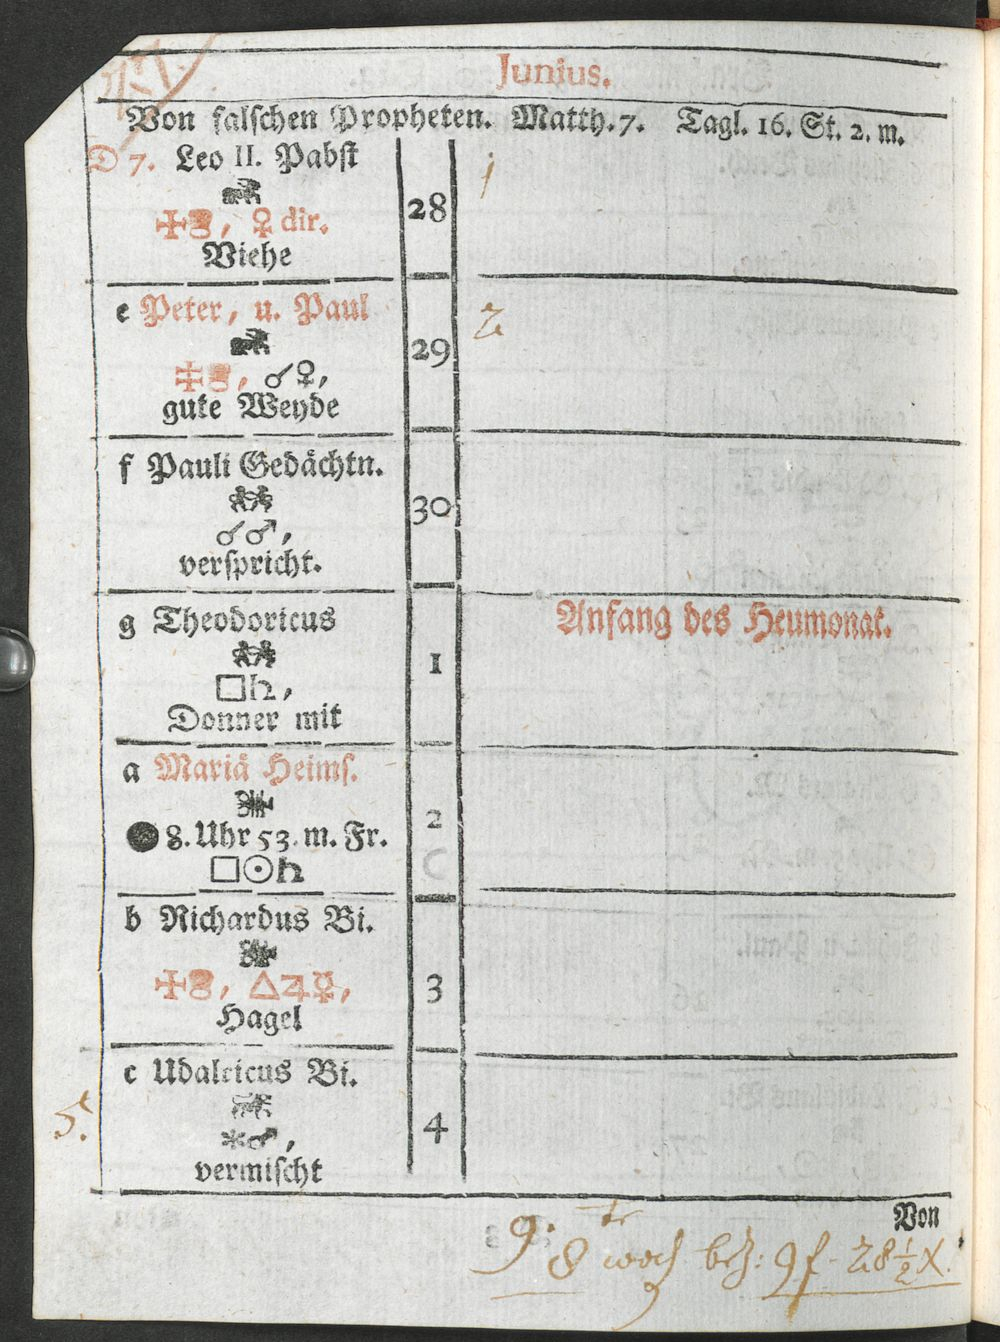 Junius.
Von falschen Propheten. Matth. 7. Tagl. 16. St. 2. m.
D 7. Leo II. Pabst
28
1
♀ dir.
Viehe
e Peter, u. Paul
29
2
☌♀,
gute Weyde
f Pauli Gedächtn.
30
☌♂,
verspricht.
g Theodoricus
1
Anfang des Heumonat.
□♄,
Donner mit
a Mariä Heims.
2
● 8. Uhr 53. m. Fr.
□☉♄
b Richardus Bi.
3
△♃☿,
Hagel
c Udalricus Bi.
4
5.
✶♂,
vermischt
Von
9. 8 woch bez: 9 f 28 ½ X.